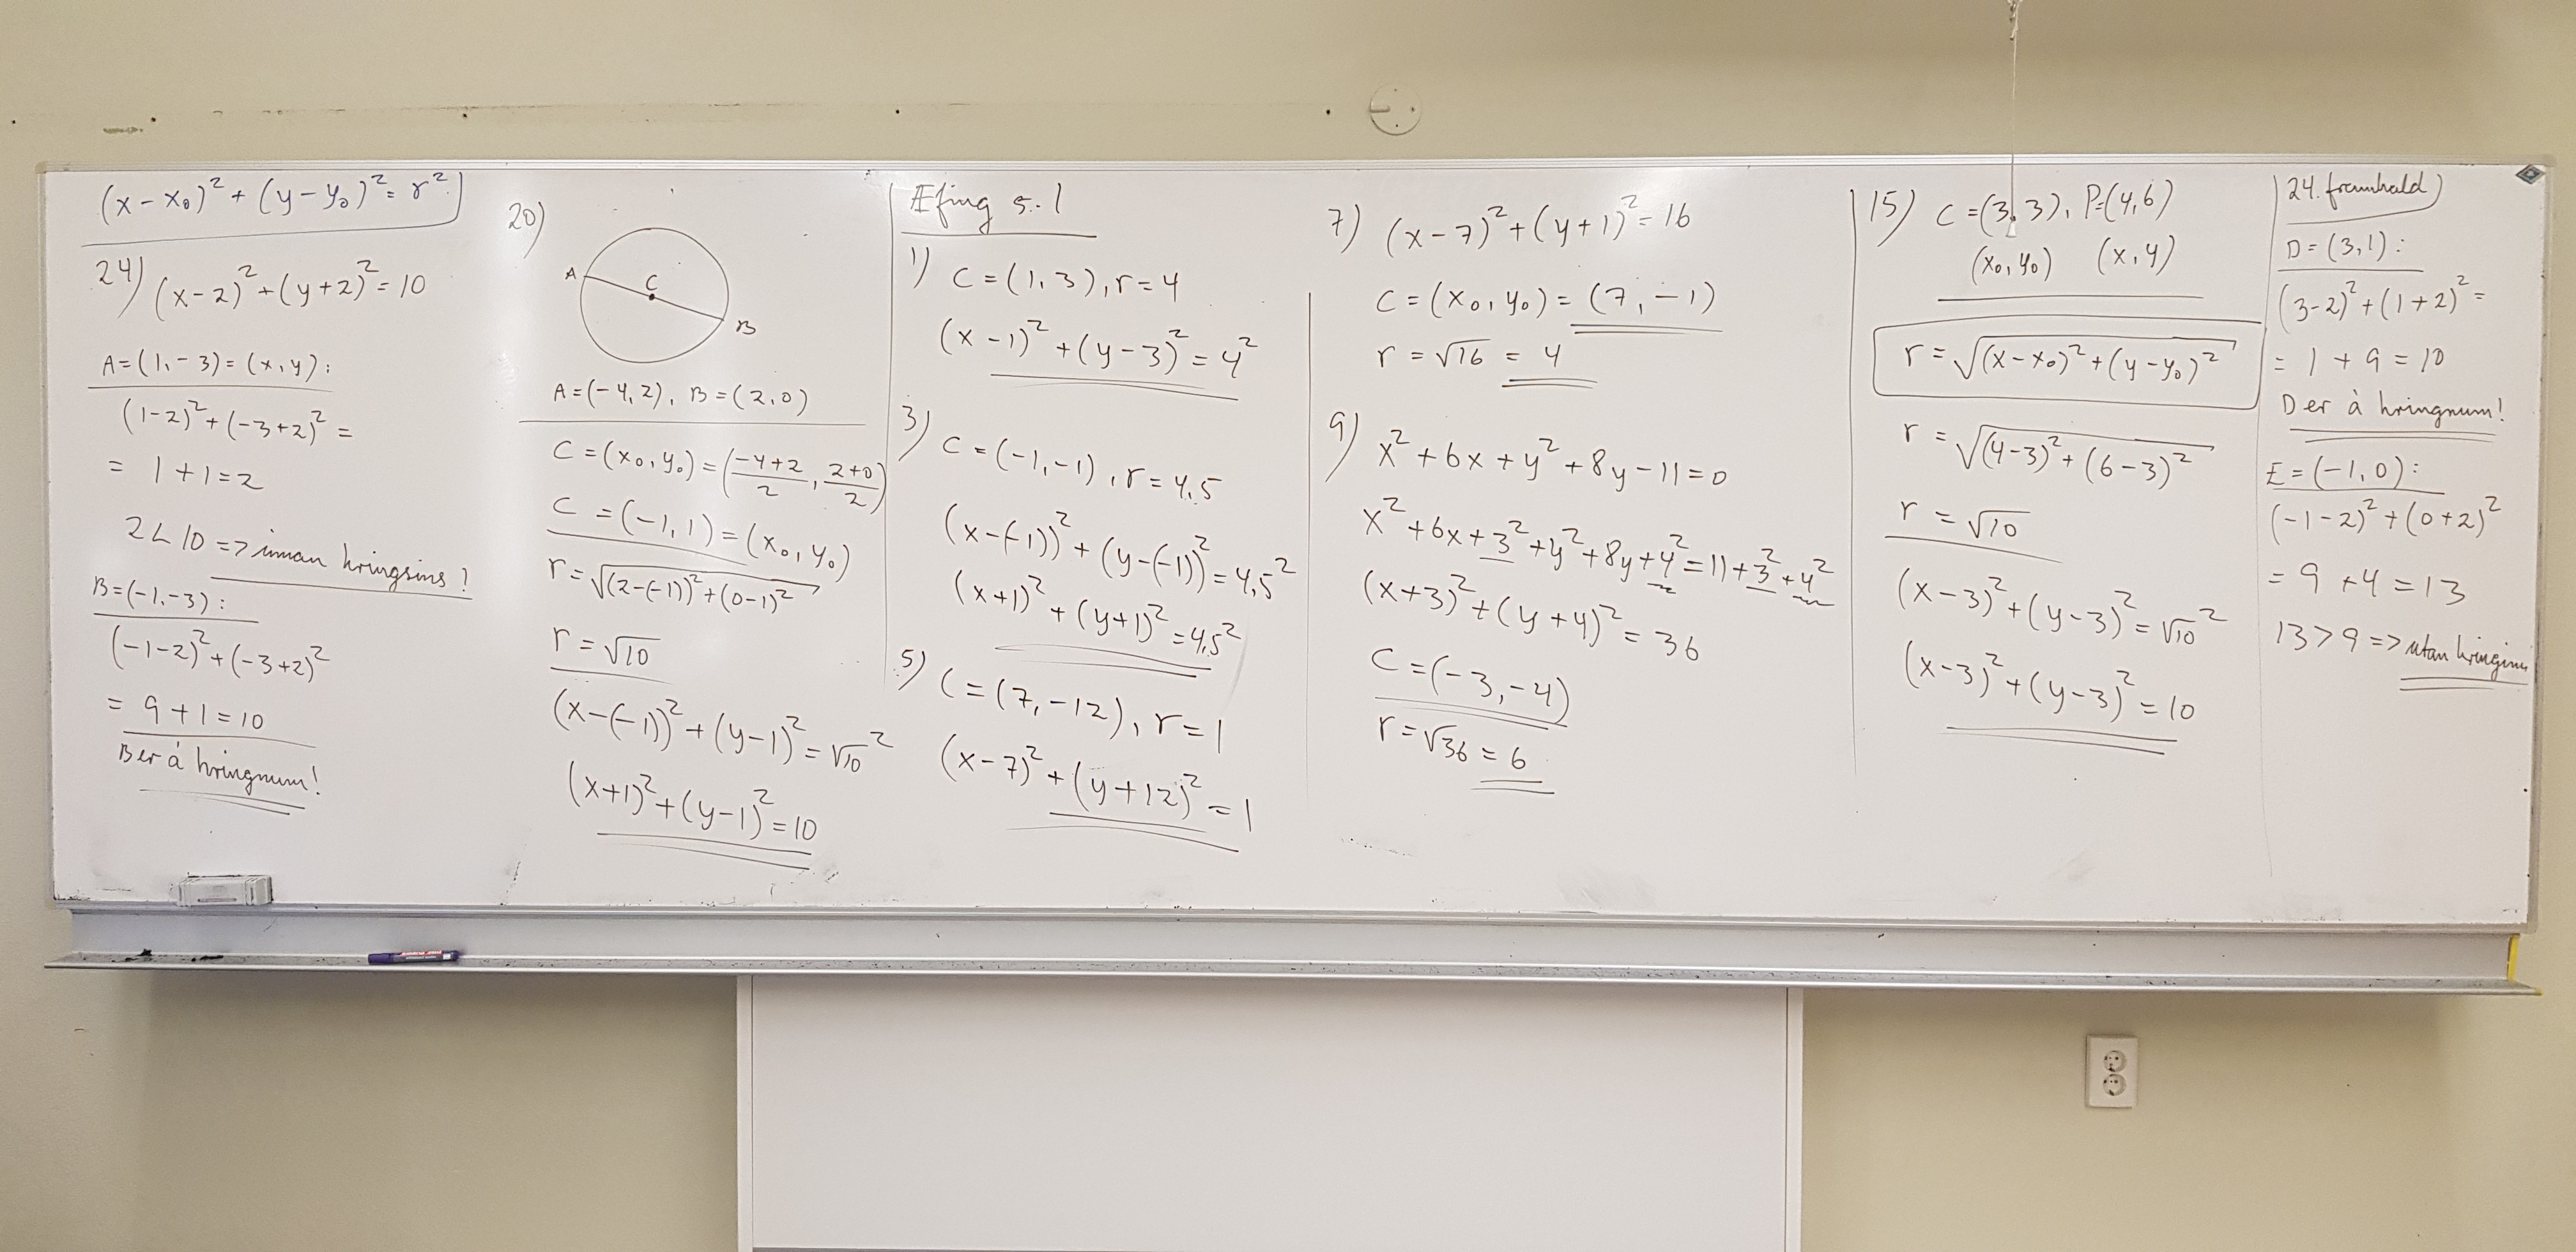 (x-x₀)²+(y-y₀)²=r²
24) (x-2)²+(y+2)²=10
A=(1,-3)=(x,y):
(1-2)²+(-3+2)²=
= 1+1=2
2<10=>innan hringsins!
B=(-1,-3):
(-1-2)²+(-3+2)²
= 9+1=10
B er á hringnum!
20)
A
C
B
A=(-4,2), B=(2,0)
C=(x₀,y₀)=(\frac{-4+2}{2}, \frac{2+0}{2})
C=(-1,1)=(x₀,y₀)
r=√((2-(-1))²+(0-1)²)
r=√10
(x-(-1))²+(y-1)²=√10²
(x+1)²+(y-1)²=10
Æfing 5.1
1) C=(1,3), r=4
(x-1)²+(y-3)²=4²
3) C=(-1,-1), r=4,5
(x-(-1))²+(y-(-1))²=4,5²
(x+1)²+(y+1)²=4,5²
5) C=(7,-12), r=1
(x-7)²+(y+12)²=1
7) (x-7)²+(y+1)²=16
C=(x₀,y₀)=(7,-1)
r=√16=4
9) x²+6x+y²+8y-11=0
x²+6x+3²+y²+8y+4²=11+3²+4²
(x+3)²+(y+4)²=36
C=(-3,-4)
r=√36=6
15) C=(3,3), P=(4,6)
(x₀,y₀) (x,y)
r=√((x-x₀)²+(y-y₀)²)
r=√((4-3)²+(6-3)²)
r=√10
(x-3)²+(y-3)²=√10²
(x-3)²+(y-3)²=10
24. framhald
D=(3,1):
(3-2)²+(1+2)²=
= 1+9=10
D er á hringnum!
E=(-1,0):
(-1-2)²+(0+2)²
= 9+4=13
13>9=>utan hringins